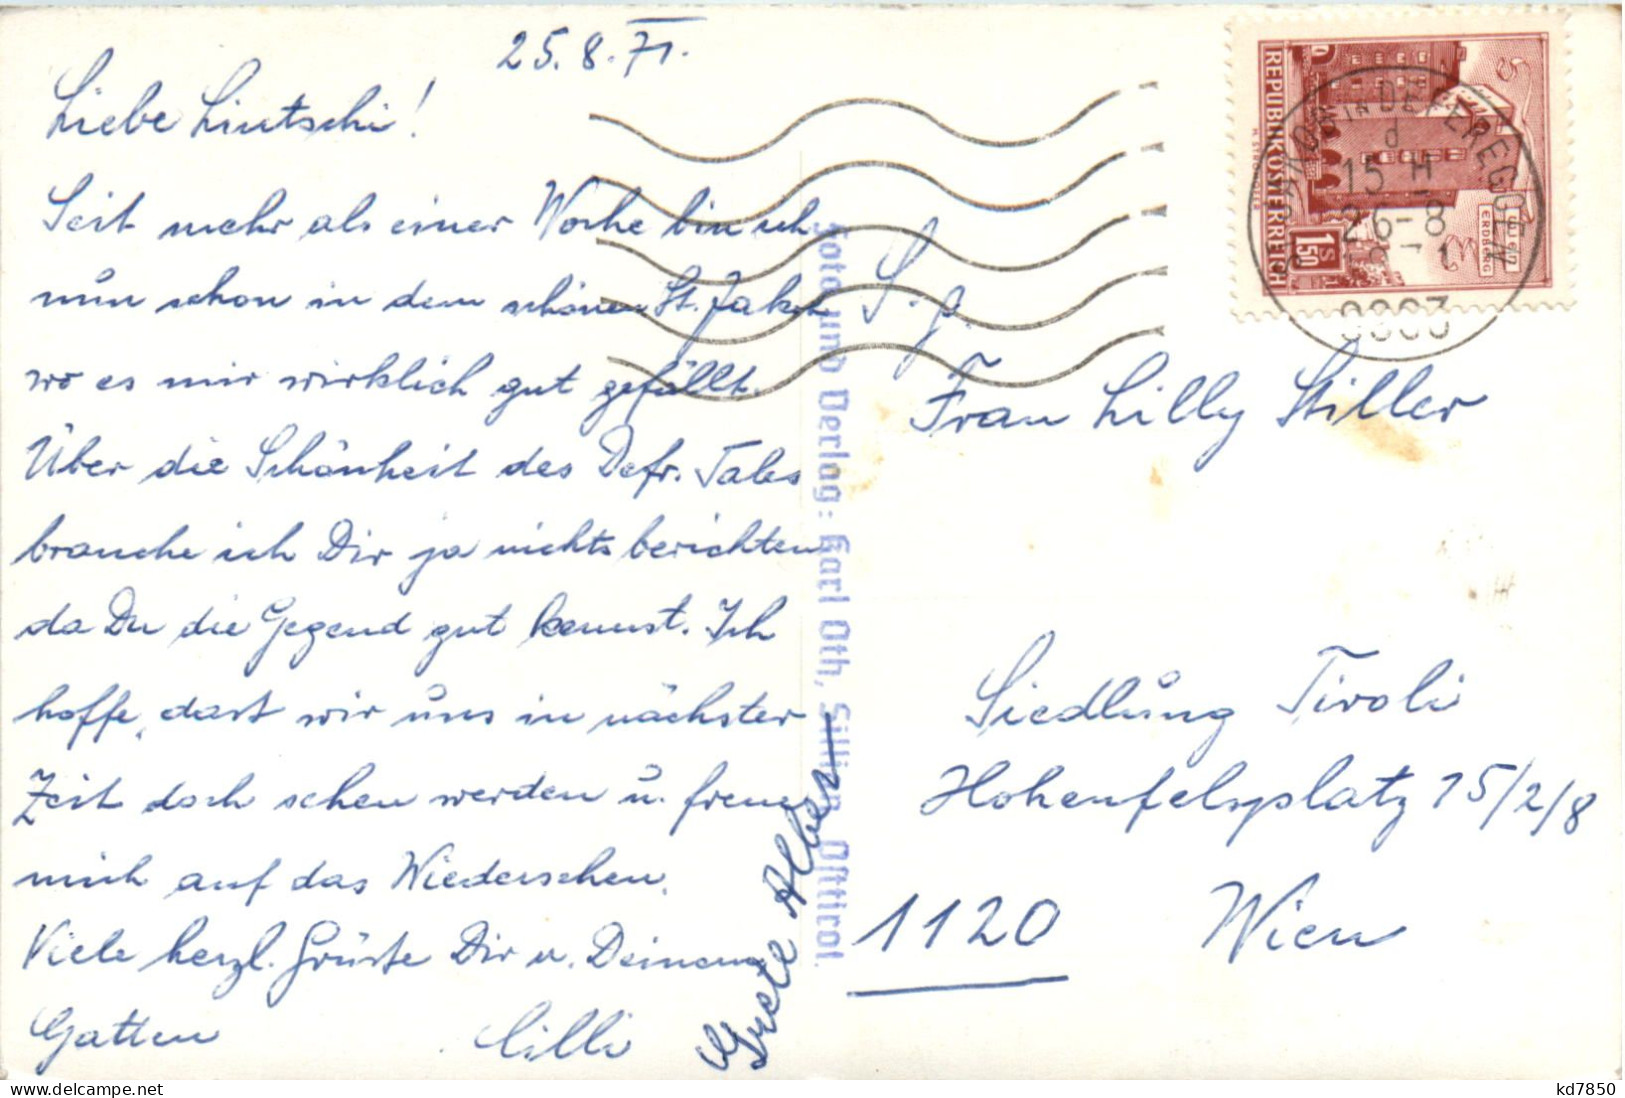 25.8.71.
Liebe Liutschi!
Seit mehr als einer Woche bin ich
nun schon in dem schönen St. Jakob
wo es mir wirklich gut gefällt.
Über die Schönheit des Defr. Tales
brauche ich Dir ja nichts berichten
da Du die Gegend gut kennst. Ich
hoffe, dast wir uns in nächster
Zeit doch sehen werden u. freue
mich auf das Wiedersehen.
Viele herzl. Grüste Dir u. Deinem
Gatten Cilli
Grete Alber
Foto und Verlag: Karl Oth, Sillian, Osttirol.
S. g.
Frau Lilly Stiller
Siedlung Tivoli
Hohenfelsplatz 15/2/8
1120 Wien
REPUBLIK ÖSTERREICH
1 S 50
ERDBERG
ST. JAKOB IN DEFEREGGEN
d
15 H
26-8
1971
9963
kd7850